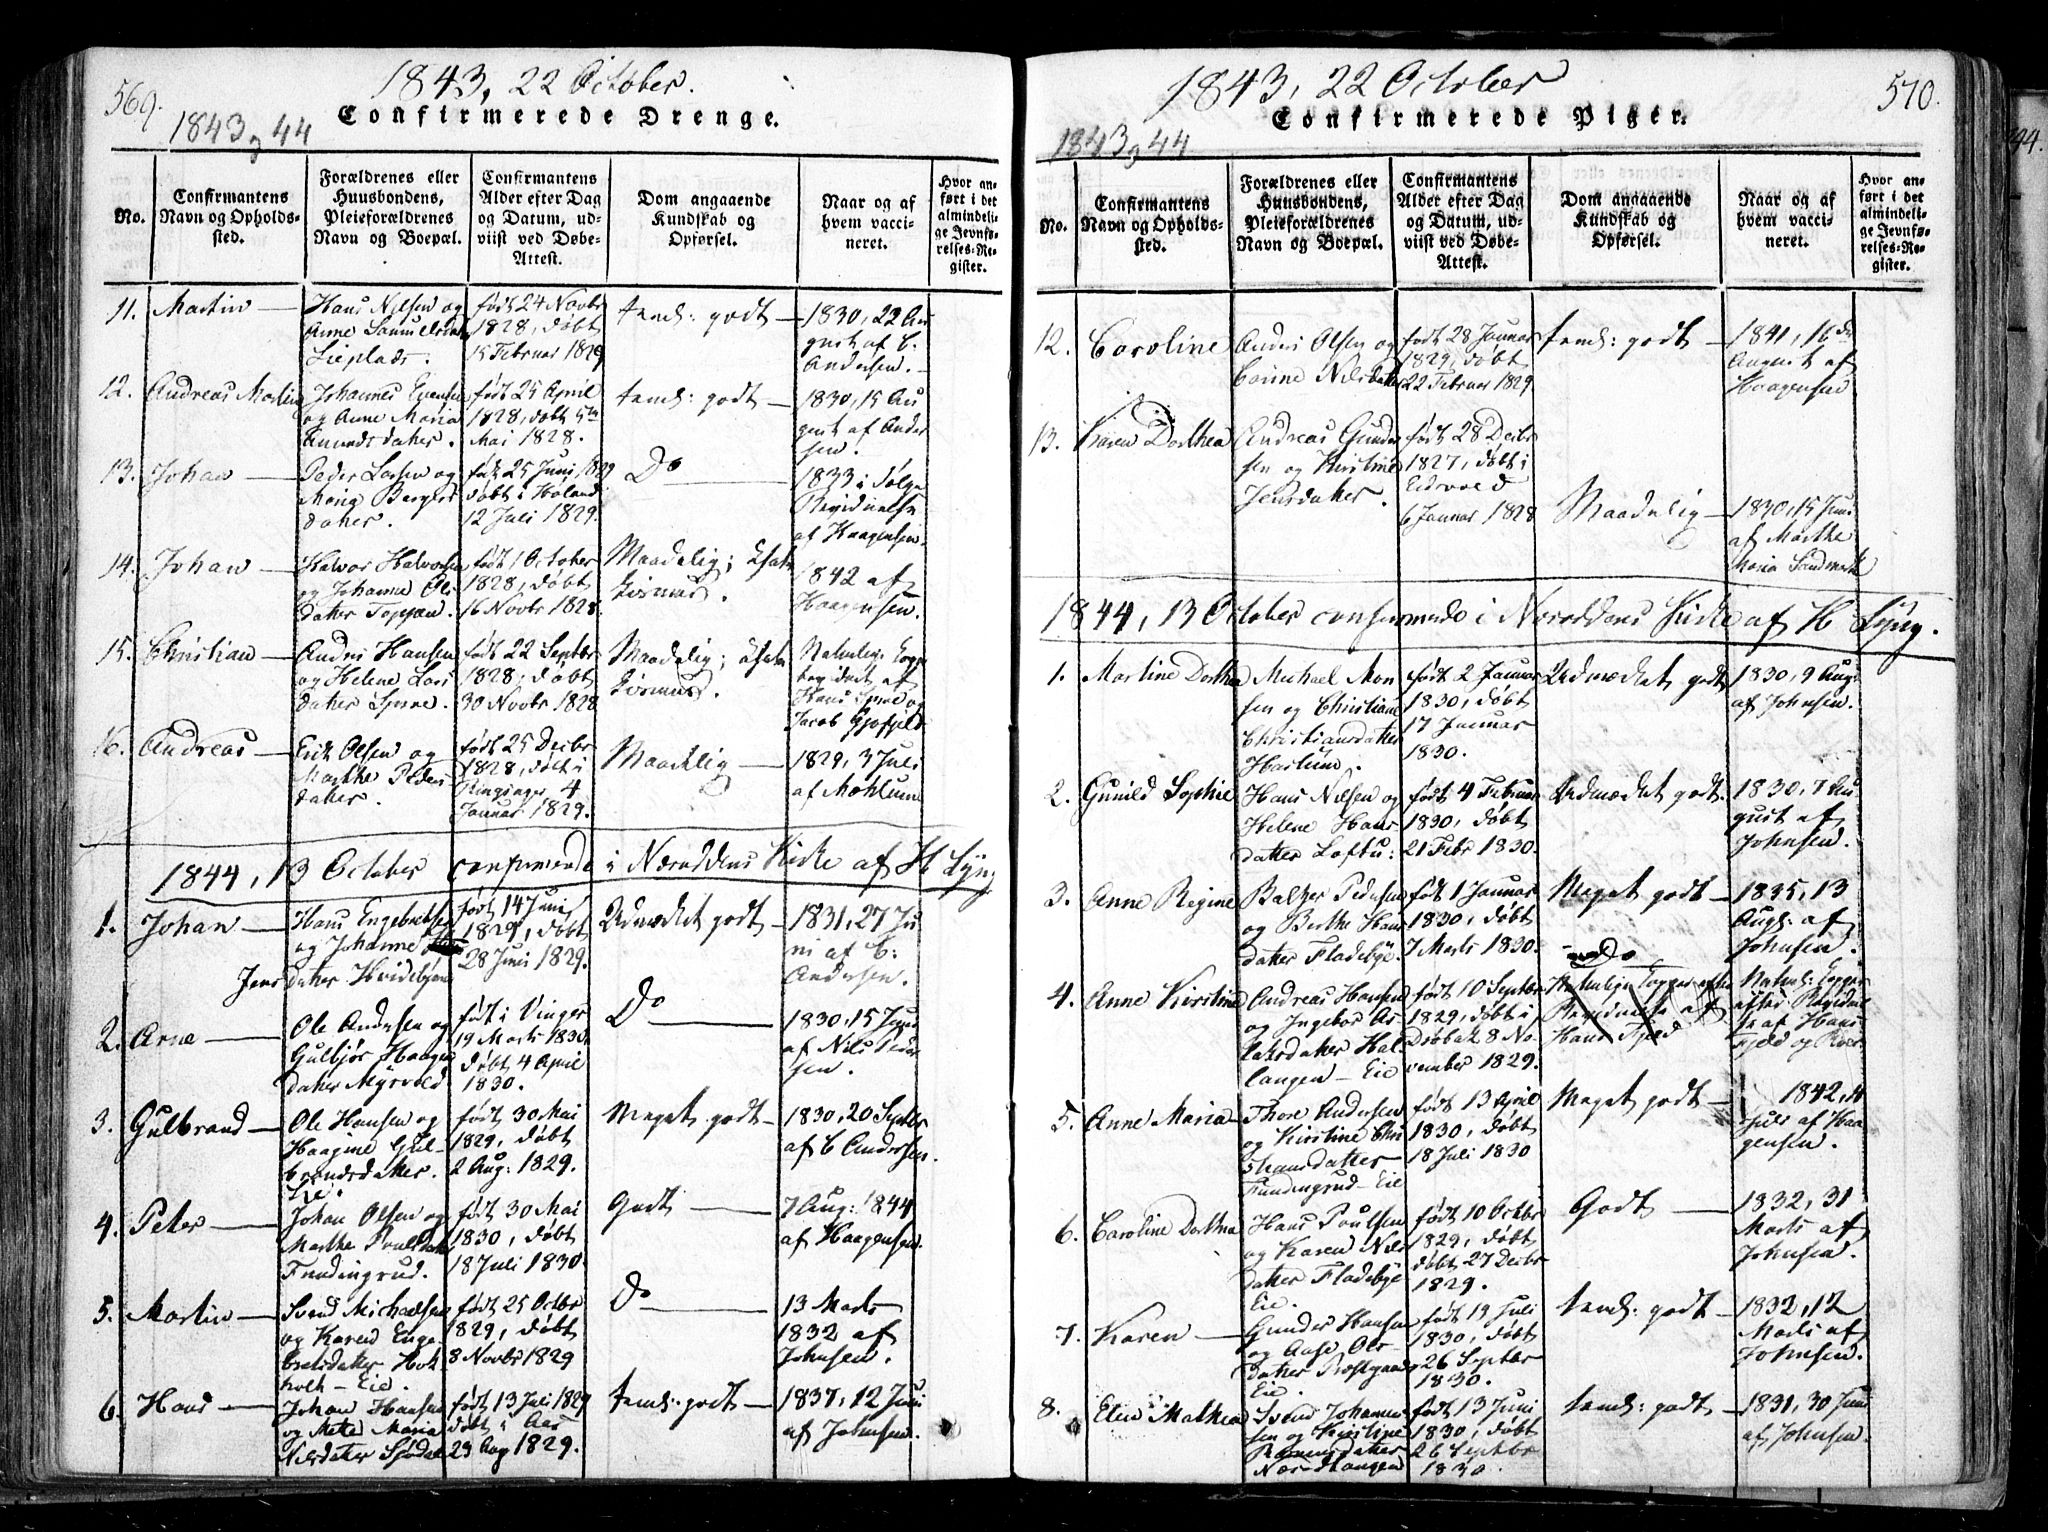 569.
1843, 22 October.
Confirmerede Drenge.
1843 og 44
No.
Confirmantens
Navn og Opholds-
sted.
Forældrenes eller
Huusbondens,
Pleieforældrenes
Navn og Boepæl.
Confirmantens
Alder efter Dag
og Datum, ud-
viist ved Døbe-
Attest.
Dom angaaende
Kundskab og
Opførsel.
Naar og af
hvem vacci-
neret.
Hvor an-
ført i det
almindeli-
ge Jevnfø-
relses-Re-
gister.
11.
Martin
Hans Nilsen og
Anne Samuelsdr
Lieplads.
født 24 Novbr
1828, døbt
15 Februar 1829
temel: godt
1830, 22 Au
gust af C.
Andersen.
12.
Andreas Martin
Johannes Evensen
og Anne Maria
Amundsdatter.
født 25 April
1828, døbt 5te
Mai 1828.
temel: godt
1830, 15 Au
gust af Ander
sen.
13.
Johan
Peder Larsen og
Maria Bergers
datter.
født 25 Juni 1829
døbt i Høland
12 Juli 1829.
Do
1833 i Følge
af Haagensen.
14.
Johan
Halvor Halvorsen
og Johanne Ols
datter Toppen.
født 1 October
1828, døbt
16 Novbr 1828.
Maadelig;
1842 af
Haagensen.
15.
Christian
Anders Hansen
og Helene Lars
datter Spone.
født 22 Septbr
1828, døbt
30 Novbr 1828
Maadelig;
Naturlig: Kopp
af
Hans Spone og
Jacob Gjøfjeld
16.
Andreas
Erik Olsen og
Marthe Peders
datter.
født 25 Decbr
1828, døbt i
Ringsager 4
Januar 1829.
Maadelig
1829, 3 Juli
af Mohlume
1844, 13 October confirmerede i Næsoddens Kirke af H Lyng
1.
Johan
Hans Engebretsen
og Johanne
Jens datter Hvidebjørn
født 14 Juni
1829, døbt
28 Juni 1829.
Udmærket godt
1831, 27 Ju
ni af C:
Andersen.
2.
Arne
Ole Andersen og
Gulbjør Haagens
datter Myrvold
født i Vinger
19 Marts 1830.
døbt 4 April
1830.
Do
1830, 15 Juni
af Nils Peder
sen.
3.
Gulbrand
Ole Hansen og
Haagine Gul-
brandsdatter.
Lie.
født 30 Mai
1829, døbt
2 Aug: 1829.
Meget godt
1830, 20 Septbr
af C Andersen.
4.
Peter
Johan Olsen og
Marthe Poulsdatter
Fundingrud.
født 30 Mai
1830, døbt
18 Juli 1830.
Godt
7 Aug: 1844
af Haagensen.
5.
Martin
Svend Michaelsen
og Karen Enge-
bretsdatter Hok
holt - Eie.
født 25 Octbr
1829, døbt
8 Novbr 1829
Do
13 Marts
1832 af
Johnsen.
6.
Hans
Johan Hansen
og Mette Maria
Nilsdatter
født 13 Juli 1829
døbt i Aas
23 Aug 1829.
temel: godt
1837, 12 Juni
af Johnsen.
1843, 22 October
570.
Confirmerede Piger.
1843 og 44
No.
Confirmantens
Navn og Opholds-
sted.
Forældrenes eller
Huusbondens,
Pleieforældrenes
Navn og Boepæl.
Confirmantens
Alder efter Dag
og Datum, ud-
viist ved Døbe-
Attest.
Dom angaaende
Kundskab og
Opførsel.
Naar og af
hvem vacci-
neret.
Hvor an-
ført i det
almindeli-
ge Jevnfø-
relses-Re-
gister.
12.
Caroline
Anders Olsen og
Corine Nilsdatter
født 28 Januar
1829, døbt
22 Februar 1829
temel: godt
1841, 16de
August af
Haagensen
13.
Karen Dorthea
Andreas Gunder
sen og Kirstine
Jensdatter.
født 28 Decbr
1827, døbt i
Eidsvold
6 Januar 1828
Maadelig
1830, 15 Juni
af Marthe
Maria Sandmark
1844, 13 October confirmerede i Næsoddens Kirke af H Lyng.
1.
Martine Dorthea
Michael Mon
sen og Christiane
Christiansdatter
Haslum.
født 2 Januar
1830, døbt
17 Januar
1830.
Udmærket godt
1830, 9 Aug:
af Johnsen.
2.
Gunild Sophie
Hans Nilsen og
Helene Hans-
datter Loftu:
født 4 Februar
1830, døbt
21 Febr 1830.
Udmærket godt.
1830, 7 Au
gust af
Johnsen.
3.
Anne Regine
Baltzer Pedersen
og Berthe Hans
datter Fladebye.
født 1 Januar
1830, døbt
7 Marts 1830.
Meget godt
1835, 13
Augs. af
Johnsen.
4.
Anne Kirstine
Andreas Hansen
og Ingebor As-
laksdatter Hal-
langen - Eie
født 10 Septbr
1829, døbt i
Drøbak 8 No-
vember 1829.
Do
Naturlige Kopper efter
af
Hans Fjeld
Naturl: Kopper
efter
af Hans
Fjeld og
5.
Anne Maria
Thore Andersen
og Kirstine Chri
stiansdatter
Fundingrud - Eie
født 13 April
1830, døbt
18 Juli 1830
Meget godt
1842, 11
Juli af Haa
gensen.
6.
Caroline Dorthea
Hans Poulsen
og Karen Nils
datter Fladebye
Eie.
født 10 Octbr
1829, døbt
døbt 27 Decbr
1829.
Godt
1832, 31
Marts af
Johnsen.
7.
Karen
Gunder Hansen
og Aase Ols-
datter
Eie.
født 19 Juli
1830, døbt
26 Septbr
1830.
temel: godt
1832, 12
Marts af
Johnsen.
8.
Elen Mathea
Svend Johanne-
sen og Kirstine
Rasmusdatter
Næs
født 13 Juni
1830, døbt
26 Septbr
1830.
temel: godt
1831, 30 Juni
af Johnsen.